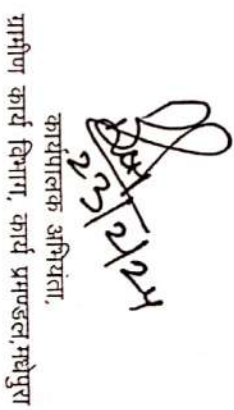 23/2/24
कार्यपालक अभियंता,
ग्रामीण कार्य विभाग, कार्य प्रमण्डल, मधेपुरा